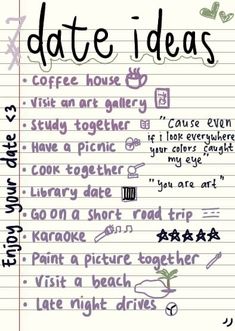 date ideas
• Coffee house
• Visit an art gallery
• Study together
• Have a picnic
• Cook together
• Library date
• Go on a short road trip
• Karaoke
• Paint a picture together
• Visit a beach
• Late night drives
"Cause even
if i look everywhere
your colors caught
my eye"
"you are art"
Enjoy your date <3